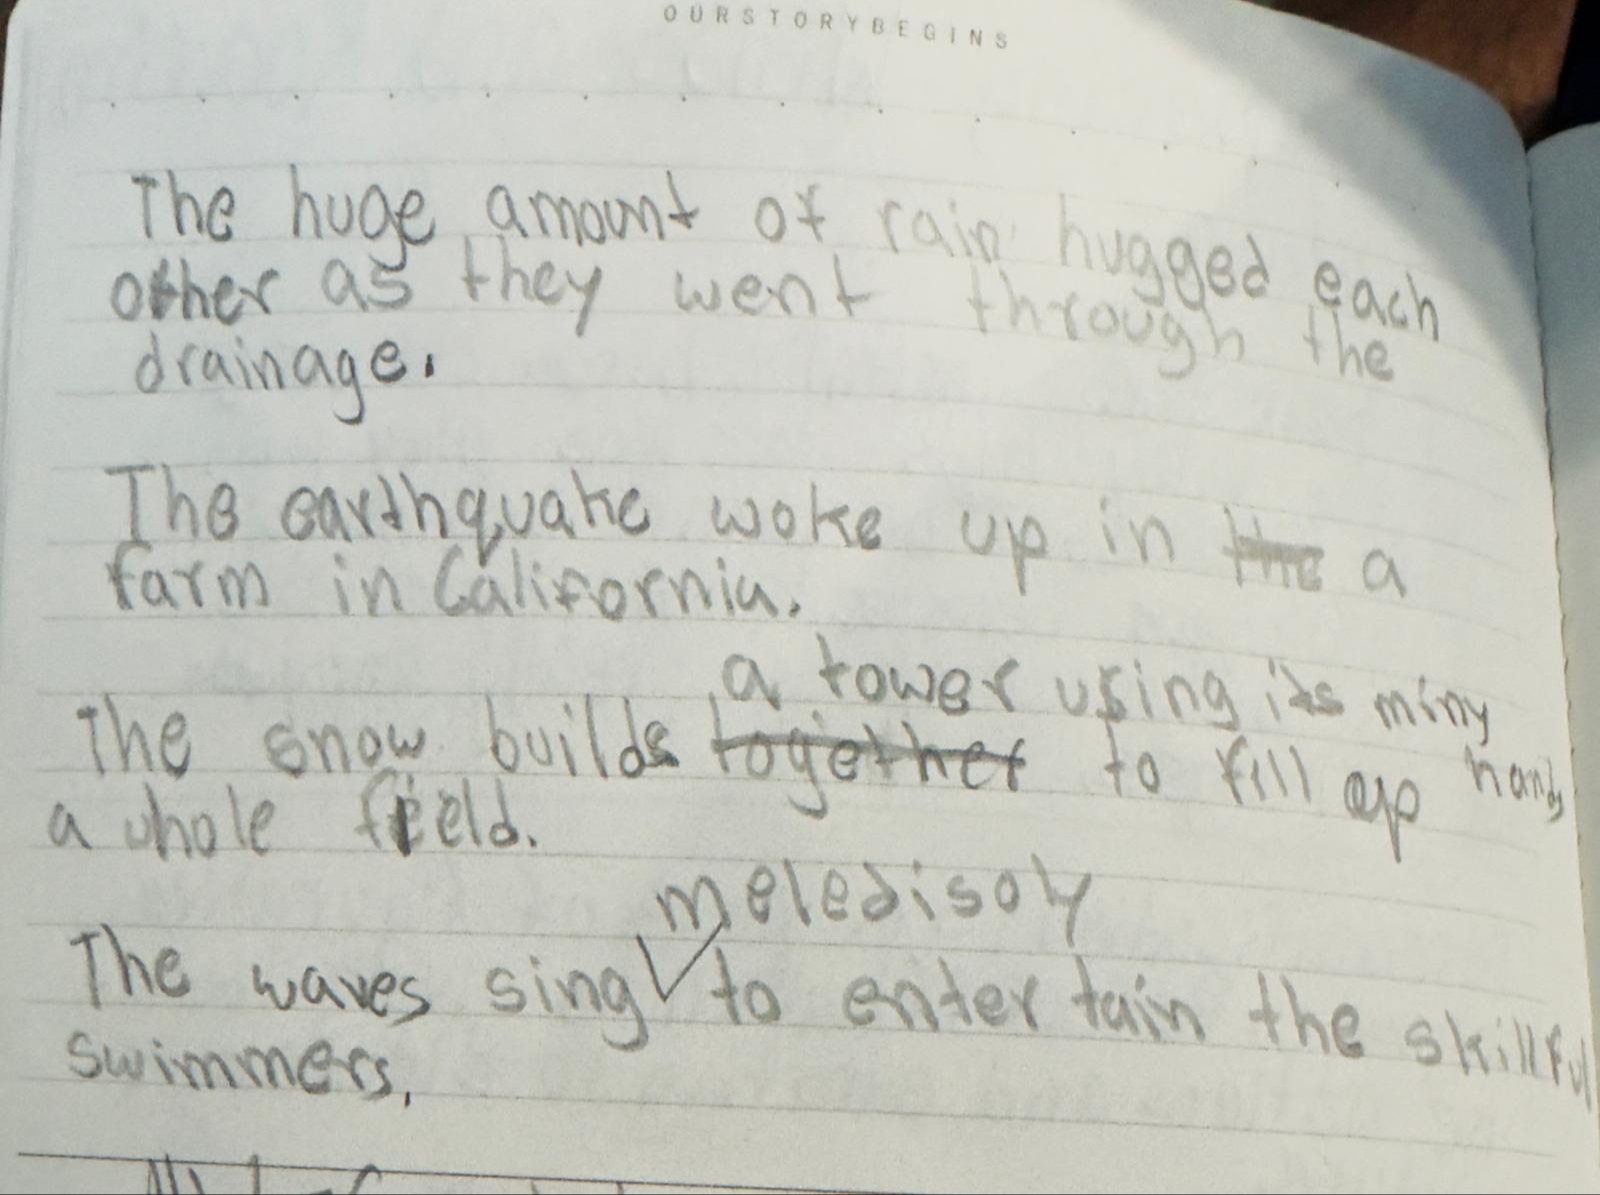 OURSTORYBEGINS
The huge amount of rain hugged each
other as they went through the
drainage.
The earthquake woke up in the a
farm in California.
a tower using its miny
The snow builds together to fill up hands
a whole field.
meledisoly
The waves sing to entertain the skillful
swimmers.